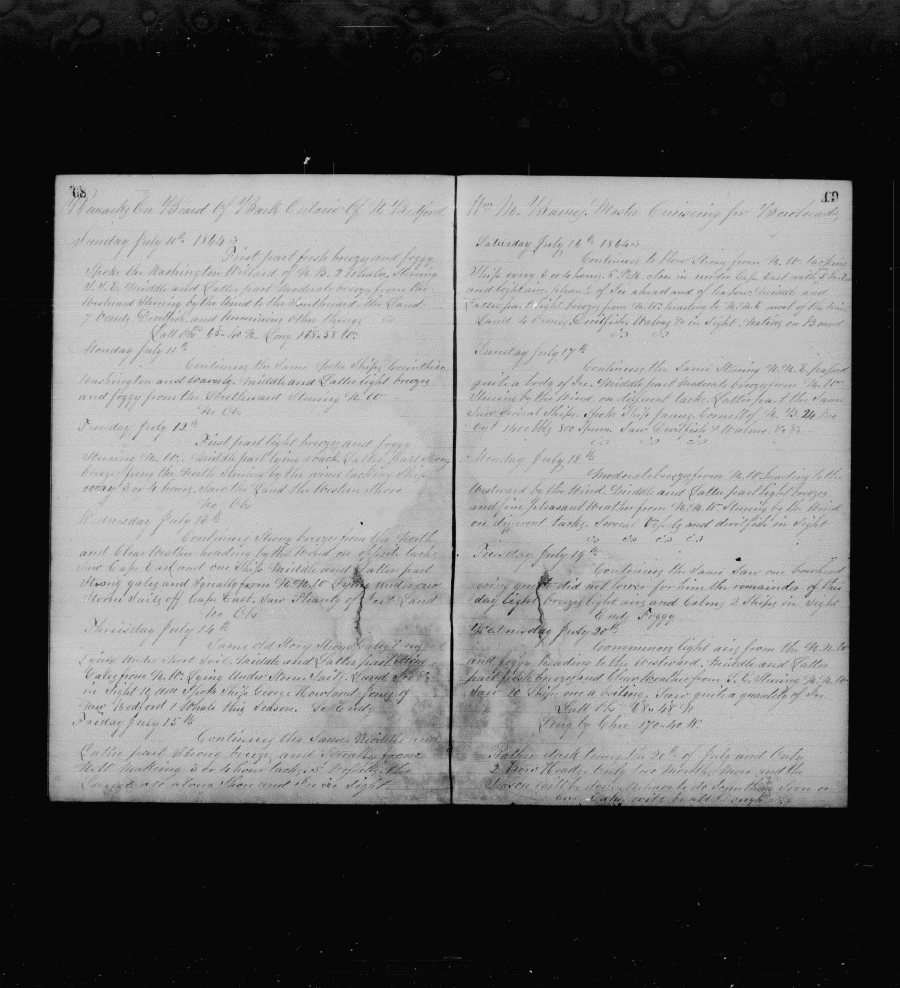 68
Remarks On Board Of Bark Ontario Of N Bedford
Sunday July 10th 1864
First part fresh breezes and foggy
Spoke the Washington Willard of N.B. 2 whales, Stering
Middle and Latter part Moderate breezes from the
Westward Stering by the Wind to the Southward, the Land
Devilfish, and numerous other things
Latt Obs 65-40 N. Long 168-58 W.
Monday July 11th
Continues the Same Spoke Ships Corinthian
Washington and Waverly. Middle and Latter light breezes
and foggy from the Southward Stering N W
No Obs
Tuesday July 12th
First part light breezes and foggy
Stering N. W. Middle part lying aback Latter part Strong
breezes from the North Stering by the wind tacking Ship
every 3 or 4 hours, Saw the Land the Western Shore
No Obs
Wednesday July 13th
Continues Strong breezes from the North
and Clear Weather heading by the Wind on opposite tacks
Saw Cape East and one Ship Middle and Latter part
Strong gales and Squally from N.N.W Lying under
Storm Sails off Cape East. Saw Plenty of Land
No Obs
Thursday July 14th
Same old Story Strong Gales and
Lying Under Short Sail. Middle and Latter part Strong
Gales from N. W. Lying Under Storm Sails. Land
in Sight Spoke Ship George Howland Jones of
New Bedford 1 Whale this Season. So Ends
Friday July 15th
Continuing the Same Middle and
Latter part Strong breezes and Squally from
N. W. Making 3 or 4 hour tacks, 5
Land all along Shore and Ice in Sight
69
Wm M. Barnes Master Cruising for Bowheads
Saturday July 16th 1864
Continues to blow Strong from N. W. tacking
Ship every 3 or 4 hours, 5 P.M. close in under Cape East with
and light airs, of Ice ahead and of Middle and
Latter part light breezes from N.W. heading to N.N.E. most of the time
Land Devilfish, Walrus &c in Sight. Natives on Board
Sunday July 17th
Continues the Same Stering N.N.E. passed
quite a body of Ice. Middle part moderate breezes from N. W
Stering by the Wind on different tacks. Latter part the Same
Saw Several Ships. Spoke Ship James, Connelly N. B 24 Mo
Out 1400 bbls 800 Sperm. Saw Devilfish & Walrus &c &c
Monday July 18th
Moderate breezes from N.W. heading to the
Westward by the Wind. Middle and Latter part light breezes
and fine Pleasant Weather from N.N.W Stering by the Wind
on different tacks. Several Ships and devilfish in Sight
Tuesday July 19th
Continuing the Same Saw one bowhead
going quick did not lower for him the remainder of the
day light breezes light airs and Calms 2 Ships in Sight
Ends Foggy
Wednesday July 20th
Commences light airs from the N.N.W
and foggy heading to the Westward, Middle and Latter
part fresh breezes and Clear Weather from S.E. Stering N.N.W
Saw 10 Ships one a boiling, Saw quit a quantity of Ice
Latt Obs 68-48 N
Long by Chro 170-40 W
Rather dark times the 20th of July and Only
2 Bow Heads. Only two Months More and the
Season will be Must do Something Soon or
our Cake will be all Dough